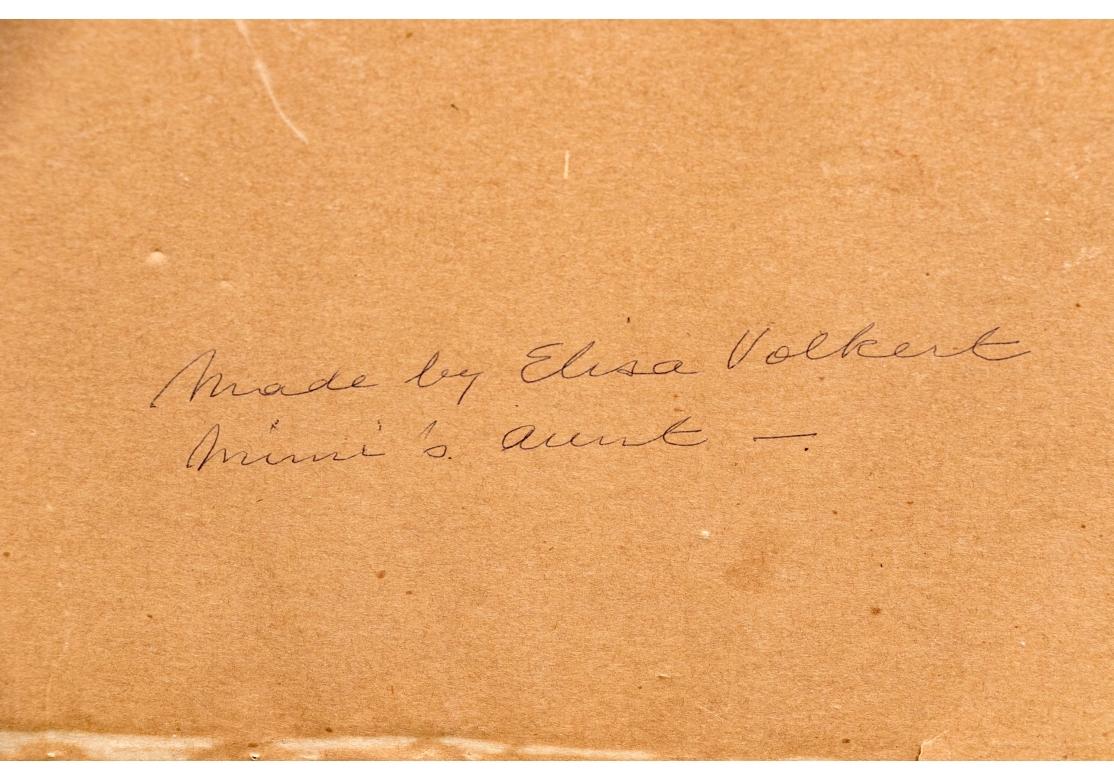 Made by Elisa Volkert
Mimi's aunt —